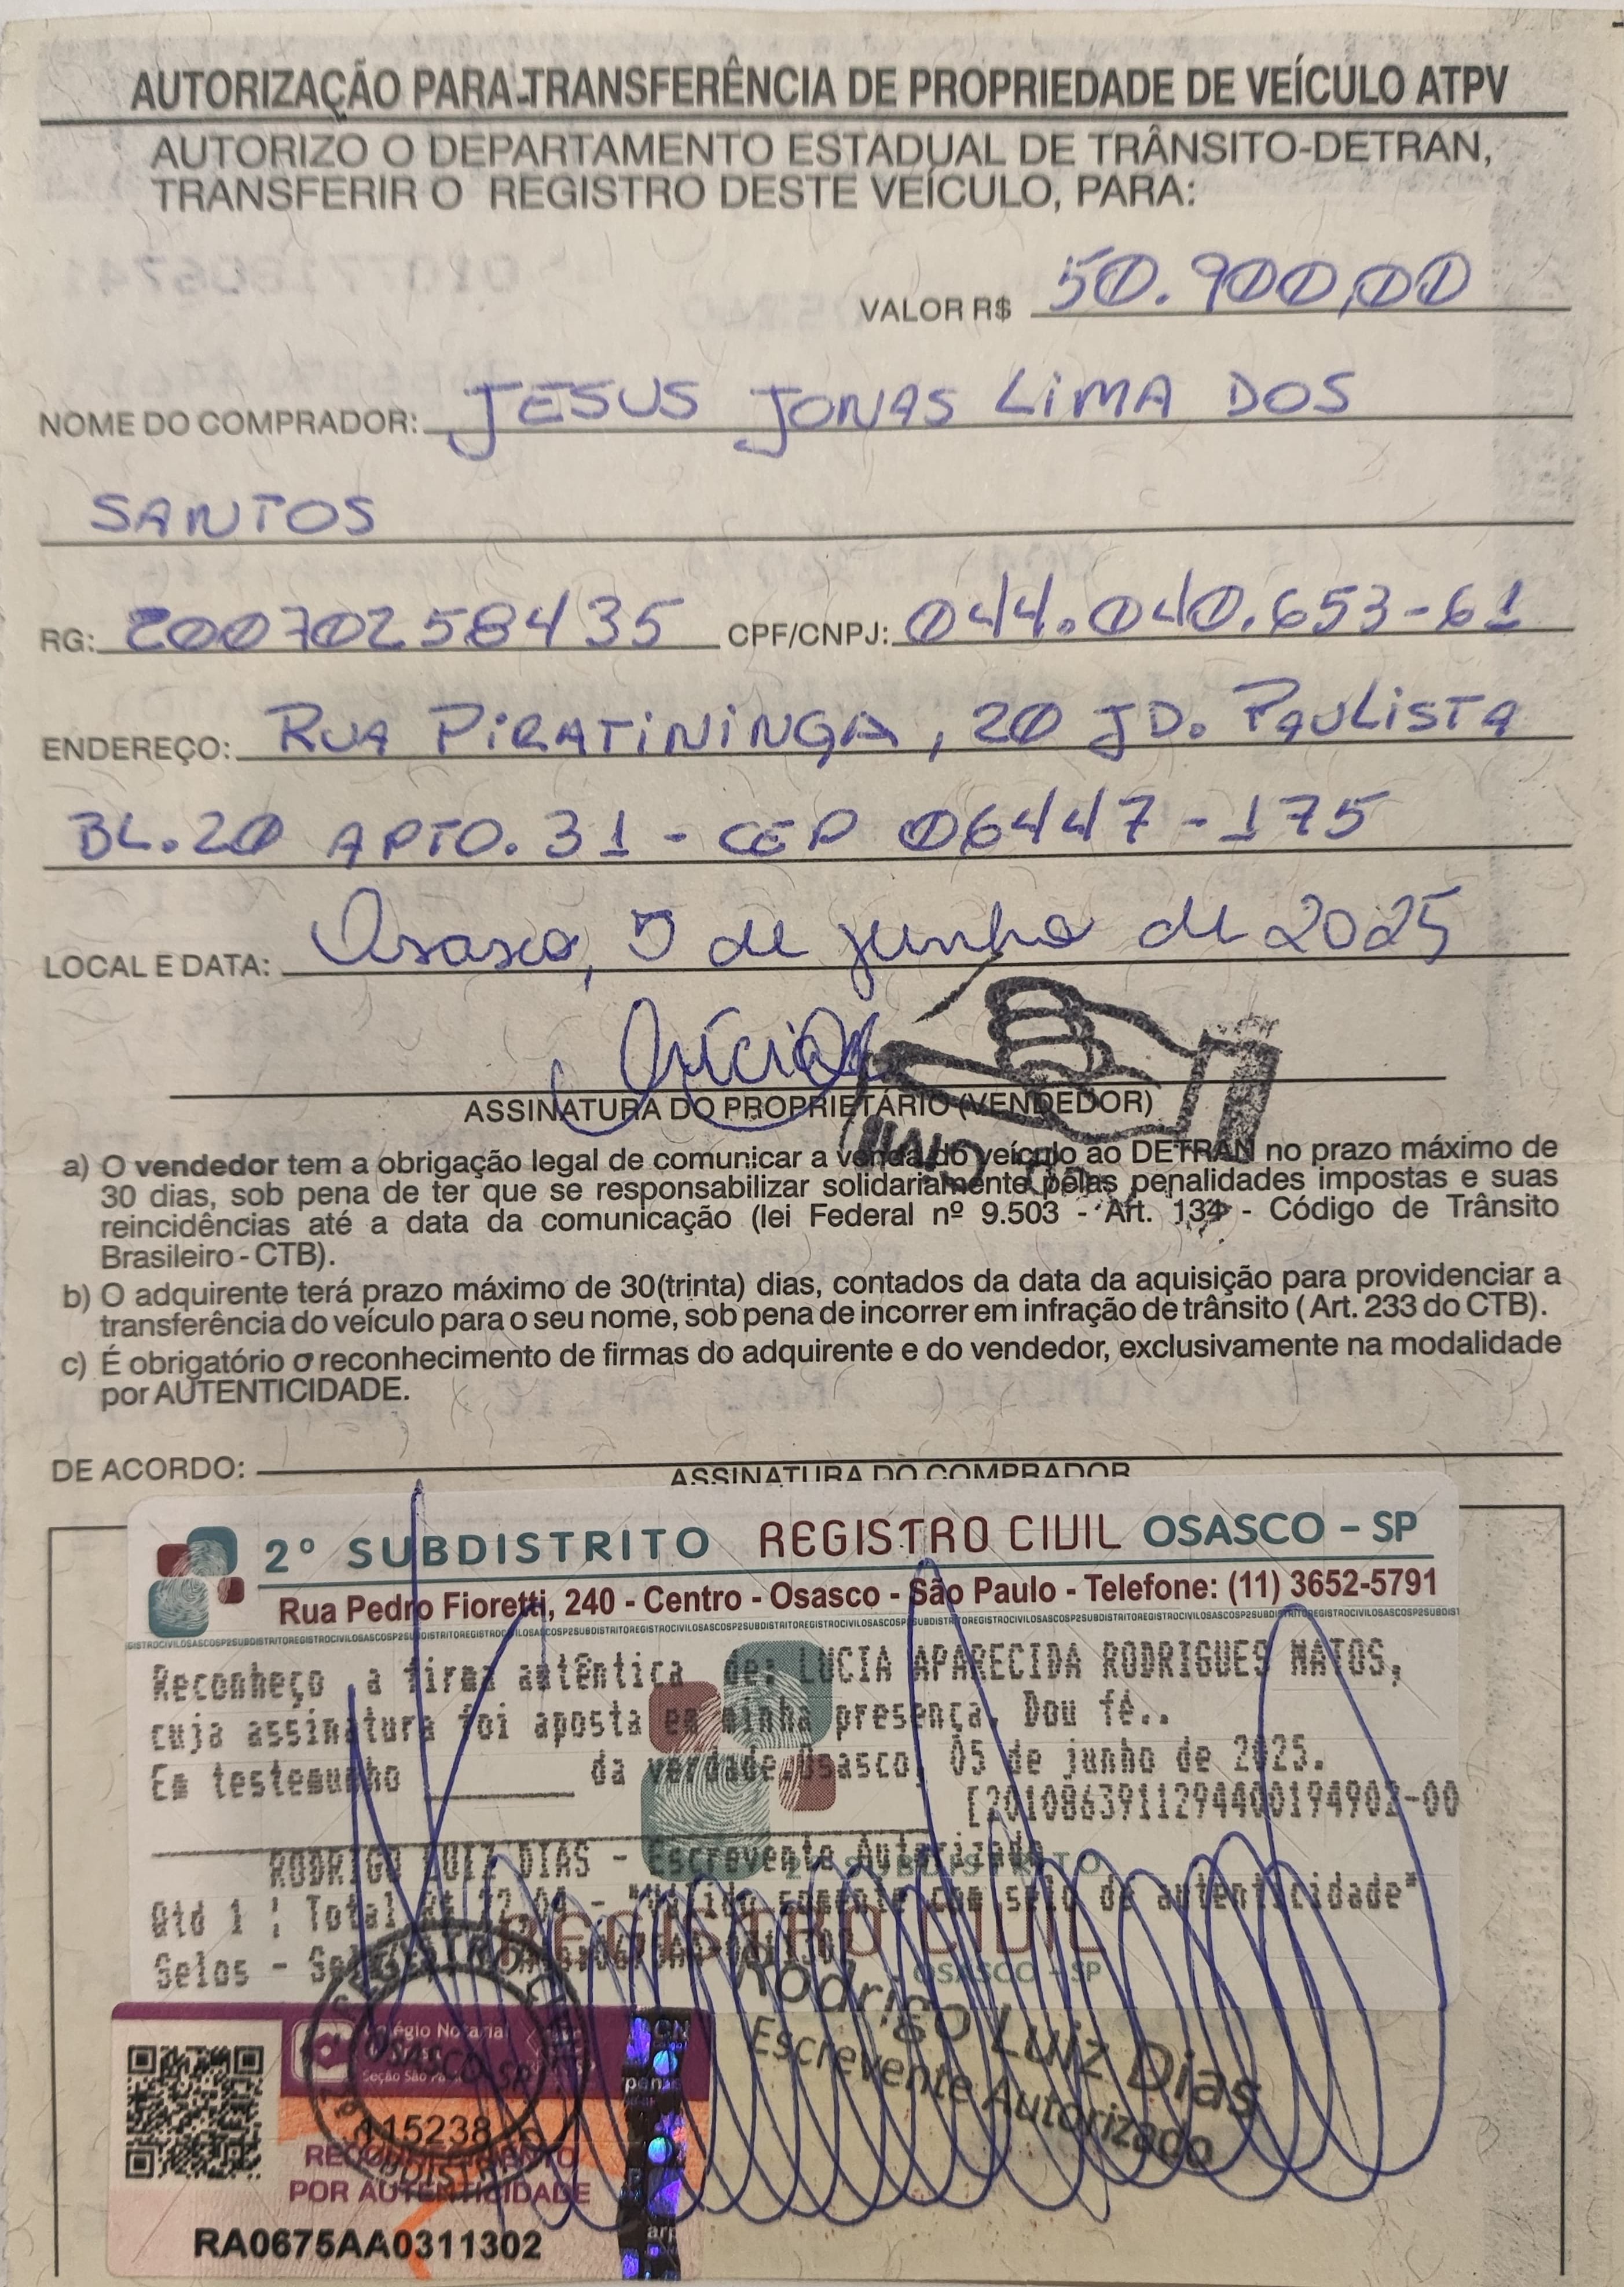 AUTORIZAÇÃO PARA TRANSFERÊNCIA DE PROPRIEDADE DE VEÍCULO ATPV
AUTORIZO O DEPARTAMENTO ESTADUAL DE TRÂNSITO-DETRAN,
TRANSFERIR O REGISTRO DESTE VEÍCULO, PARA:
VALOR R$ 50.900,00
NOME DO COMPRADOR: JESUS JONAS LIMA DOS
SANTOS
RG: 20070258435 CPF/CNPJ: 044.040.653-61
ENDEREÇO: RUA PIRATININGA, 20 JD. PAULISTA
BL.20 APTO. 31 - CEP 06447-175
LOCAL E DATA: Osasco, 5 de junho de 2025
ASSINATURA DO PROPRIETÁRIO (VENDEDOR)
a) O vendedor tem a obrigação legal de comunicar a venda do veículo ao DETRAN no prazo máximo de
30 dias, sob pena de ter que se responsabilizar solidariamente pelas penalidades impostas e suas
reincidências até a data da comunicação (lei Federal nº 9.503 - Art. 134 - Código de Trânsito
Brasileiro - CTB).
b) O adquirente terá prazo máximo de 30(trinta) dias, contados da data da aquisição para providenciar a
transferência do veículo para o seu nome, sob pena de incorrer em infração de trânsito ( Art. 233 do CTB).
c) É obrigatório o reconhecimento de firmas do adquirente e do vendedor, exclusivamente na modalidade
por AUTENTICIDADE.
DE ACORDO:
ASSINATURA DO COMPRADOR
2º SUBDISTRITO REGISTRO CIVIL OSASCO - SP
Rua Pedro Fioretti, 240 - Centro - Osasco - São Paulo - Telefone: (11) 3652-5791
Reconheço a firma autêntica de: LUCIA APARECIDA RODRIGUES MATOS,
cuja assinatura foi aposta em minha presença. Dou fé..
Em testemunho da verdade.Osasco, 05 de junho de 2025.
RODRIGO LUIZ DIAS - Escrevente Autorizado
Qtd 1 : Total R$ - "Válido somente com selo de autenticidade"
Selos -
REGISTRO CIVIL
OSASCO - SP
Rodrigo Luiz Dias
Escrevente Autorizado
Colégio Notarial
Seção São Paulo
OSASCO-SP
115238
RECONHECIMENTO
POR AUTENTICIDADE
RA0675AA0311302